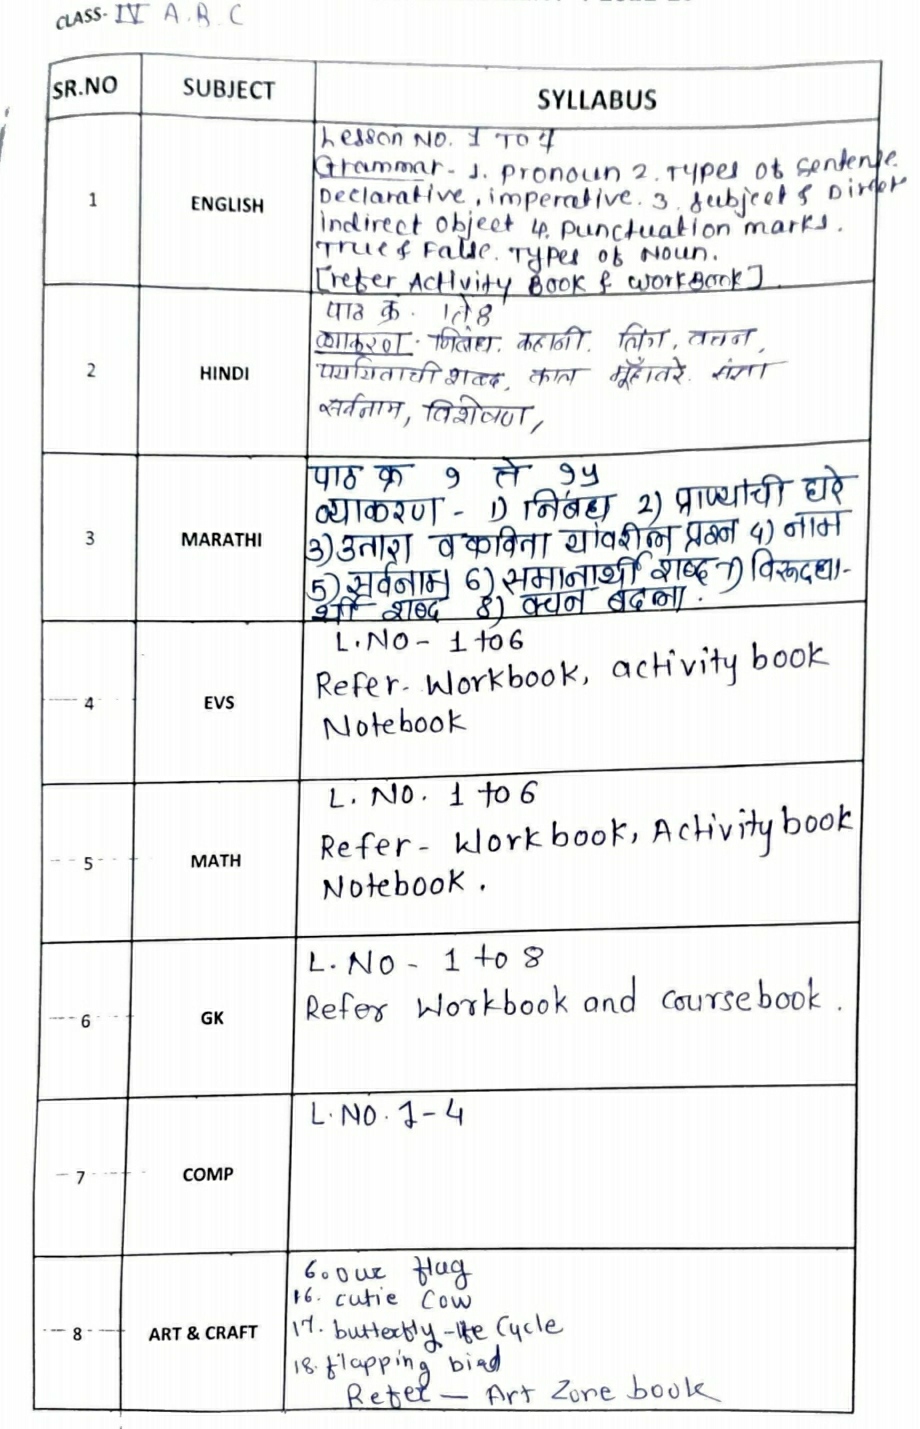 CLASS- IV A.B.C
SR.NO SUBJECT SYLLABUS
1 ENGLISH
Lesson NO. 1 TO 4
Grammar- 1. pronoun 2. Types of sentence
Declarative, imperative. 3. subject & Direct
indirect object 4. punctuation marks.
True & False. Types of Noun.
[refer Activity Book & workBook]
2 HINDI
पाठ क्र. 1 ते 8
व्याकरण. निबंध. कहानी. लिंग, वचन,
शब्द, काल मूँहावरे. संज्ञा
सर्वनाम, विशेषण,
3 MARATHI
पाठ क्र १ ते १५
व्याकरण - 1) निबंध 2) प्राण्यांची घरे
3) उतारा व कविता यांवरील प्रश्न 4) नाम
5) सर्वनाम 6) समानार्थी शब्द 7) विरूद्धा-
र्थी शब्द 8) वचन बदला.
4 EVS
L.NO- 1 to 6
Refer- Workbook, activity book
Notebook
5 MATH
L. NO. 1 to 6
Refer- Workbook, Activity book
Notebook.
6 GK
L. NO - 1 to 8
Refer Workbook and coursebook.
7 COMP
L.NO. 1-4
8 ART & CRAFT
6. our flag
16. cutie cow
17. butterfly-life Cycle
18. flapping bird
Refer — Art Zone book